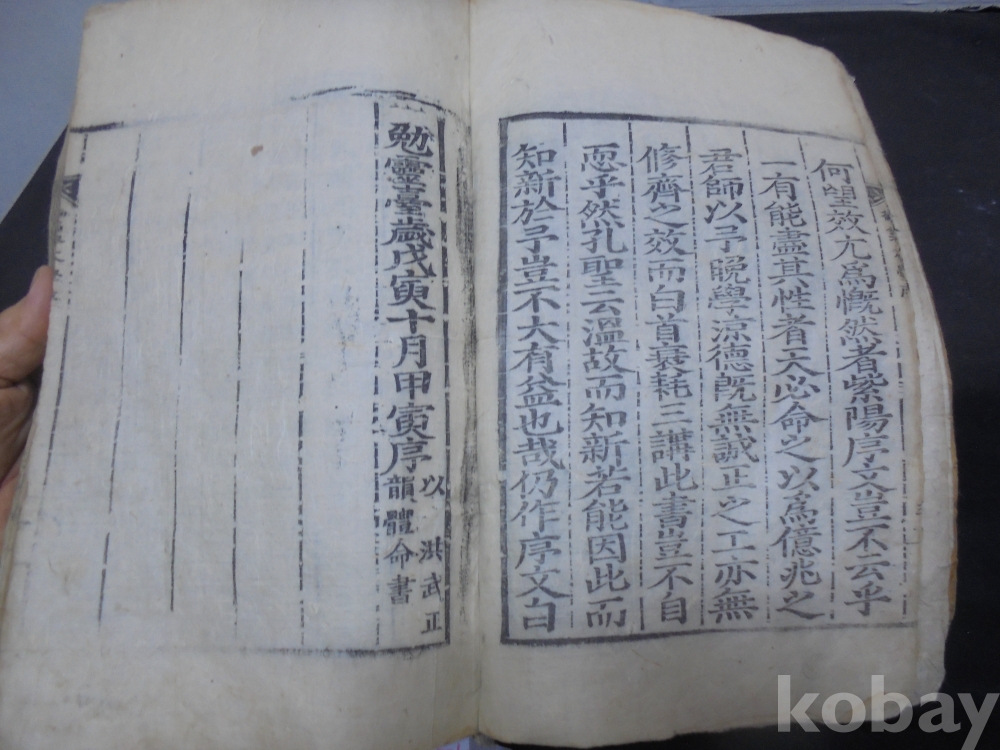 何望效尤爲慨然者紫陽序文豈不云乎
一有能盡其性者天必命之以爲億兆之
君師以予晩學涼德旣無誠正之工亦無
修齊之效而白首衰耗三講此書豈不自
恧乎然孔聖云溫故而知新若能因此而
知新於予豈不大有益也哉仍作序文自
勉靈臺歲戊寅十月甲寅序
以 洪武正
韻體命書
kobay